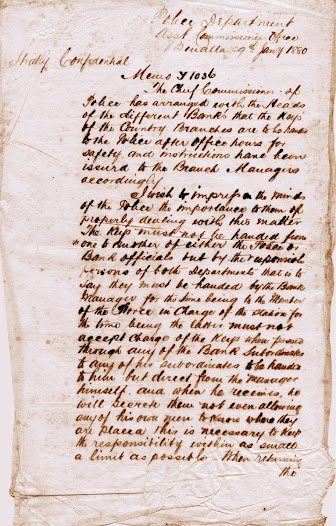 Police Department
Asst Commissioners Office
Benalla 29th Jany 1880
Strictly Confidential
Memo Y1036
The Chief Commissioner of
Police has arranged with the Heads
of the different Banks that the Keys
of the Country Branches are to be handed
to the Police after office hours for
safety, and instructions have been
issued to the Branch Managers
accordingly.
I wish to impress on the minds
of the Police the importance to them of
properly dealing with this matter.
The Keys must not be handed from
one to another of either the Police or
Bank officials but by the responsible
persons of both Departments that is to
say they must be handed by the Bank
Manager for the time being to the Member
of the Force in Charge of the Station for
the time being the latter must not
accept Charge of the Keys when passed
through any of the Bank Subordinates
to any of his subordinates to be handed
to him but direct from the Manager
himself, and when he receives, he
will secrete them not even allowing
any of his own men to know where they
are placed this is necessary to keep
the responsibility within as small
a limit as possible. When returning
the